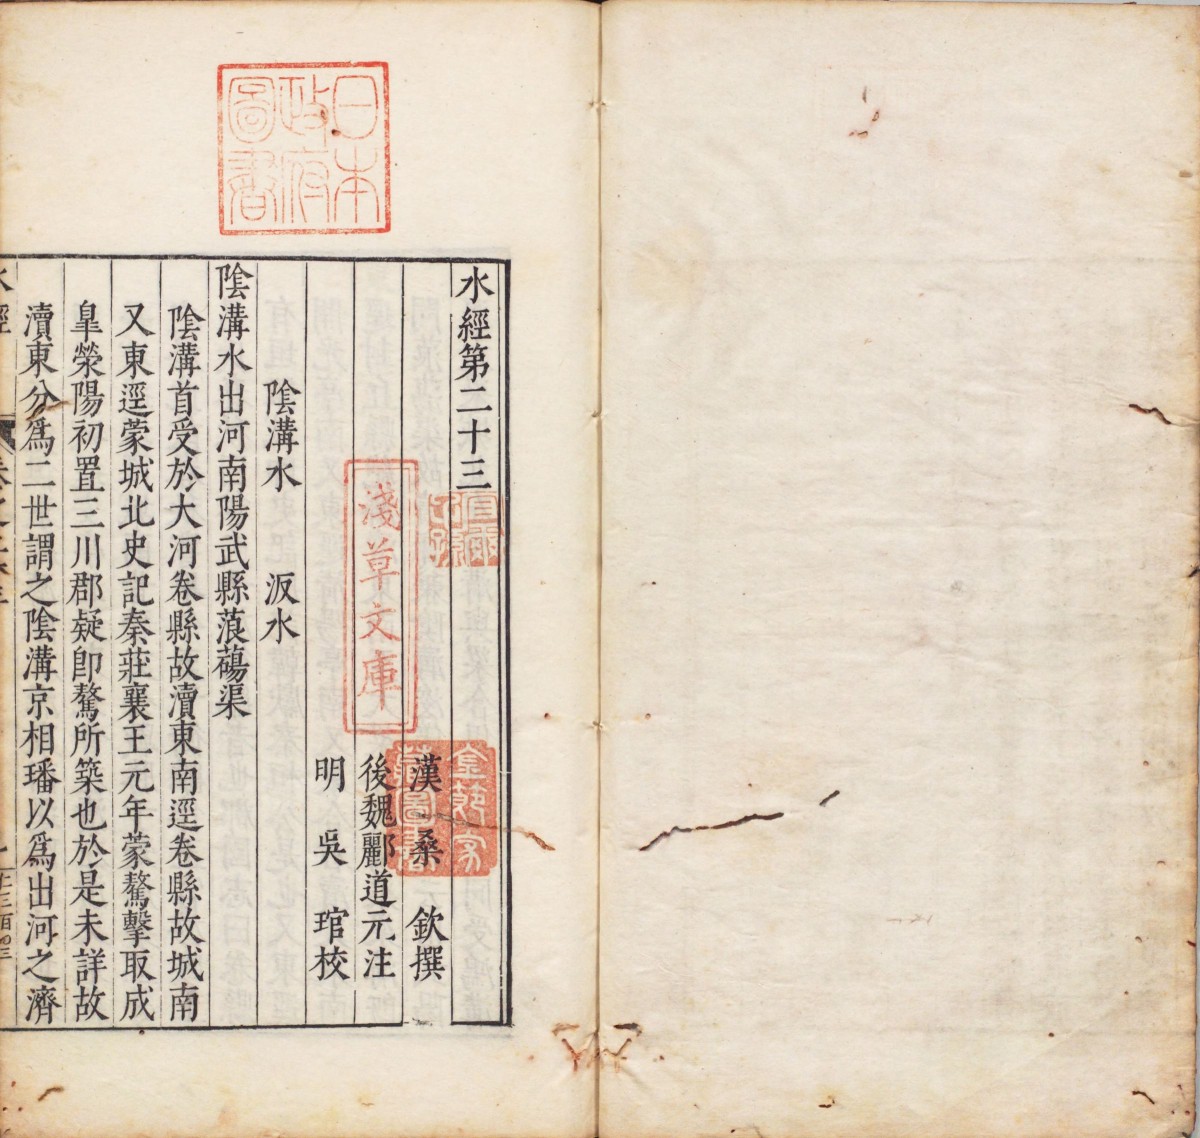 日本
政府
圖書
水經第二十三
漢 桑 欽撰
後魏酈道元注
明 吳 琯校
淺草文庫
宜爾
子孫
陰溝水 汳水
陰溝水出河南陽武縣蒗蕩渠
陰溝首受於大河卷縣故瀆東南逕卷縣故城南
又東逕蒙城北史記秦莊襄王元年蒙驁擊取成
皐滎陽初置三川郡疑卽驁所築也於是未詳故
瀆東分爲二世謂之陰溝京相璠以爲出河之濟
水經